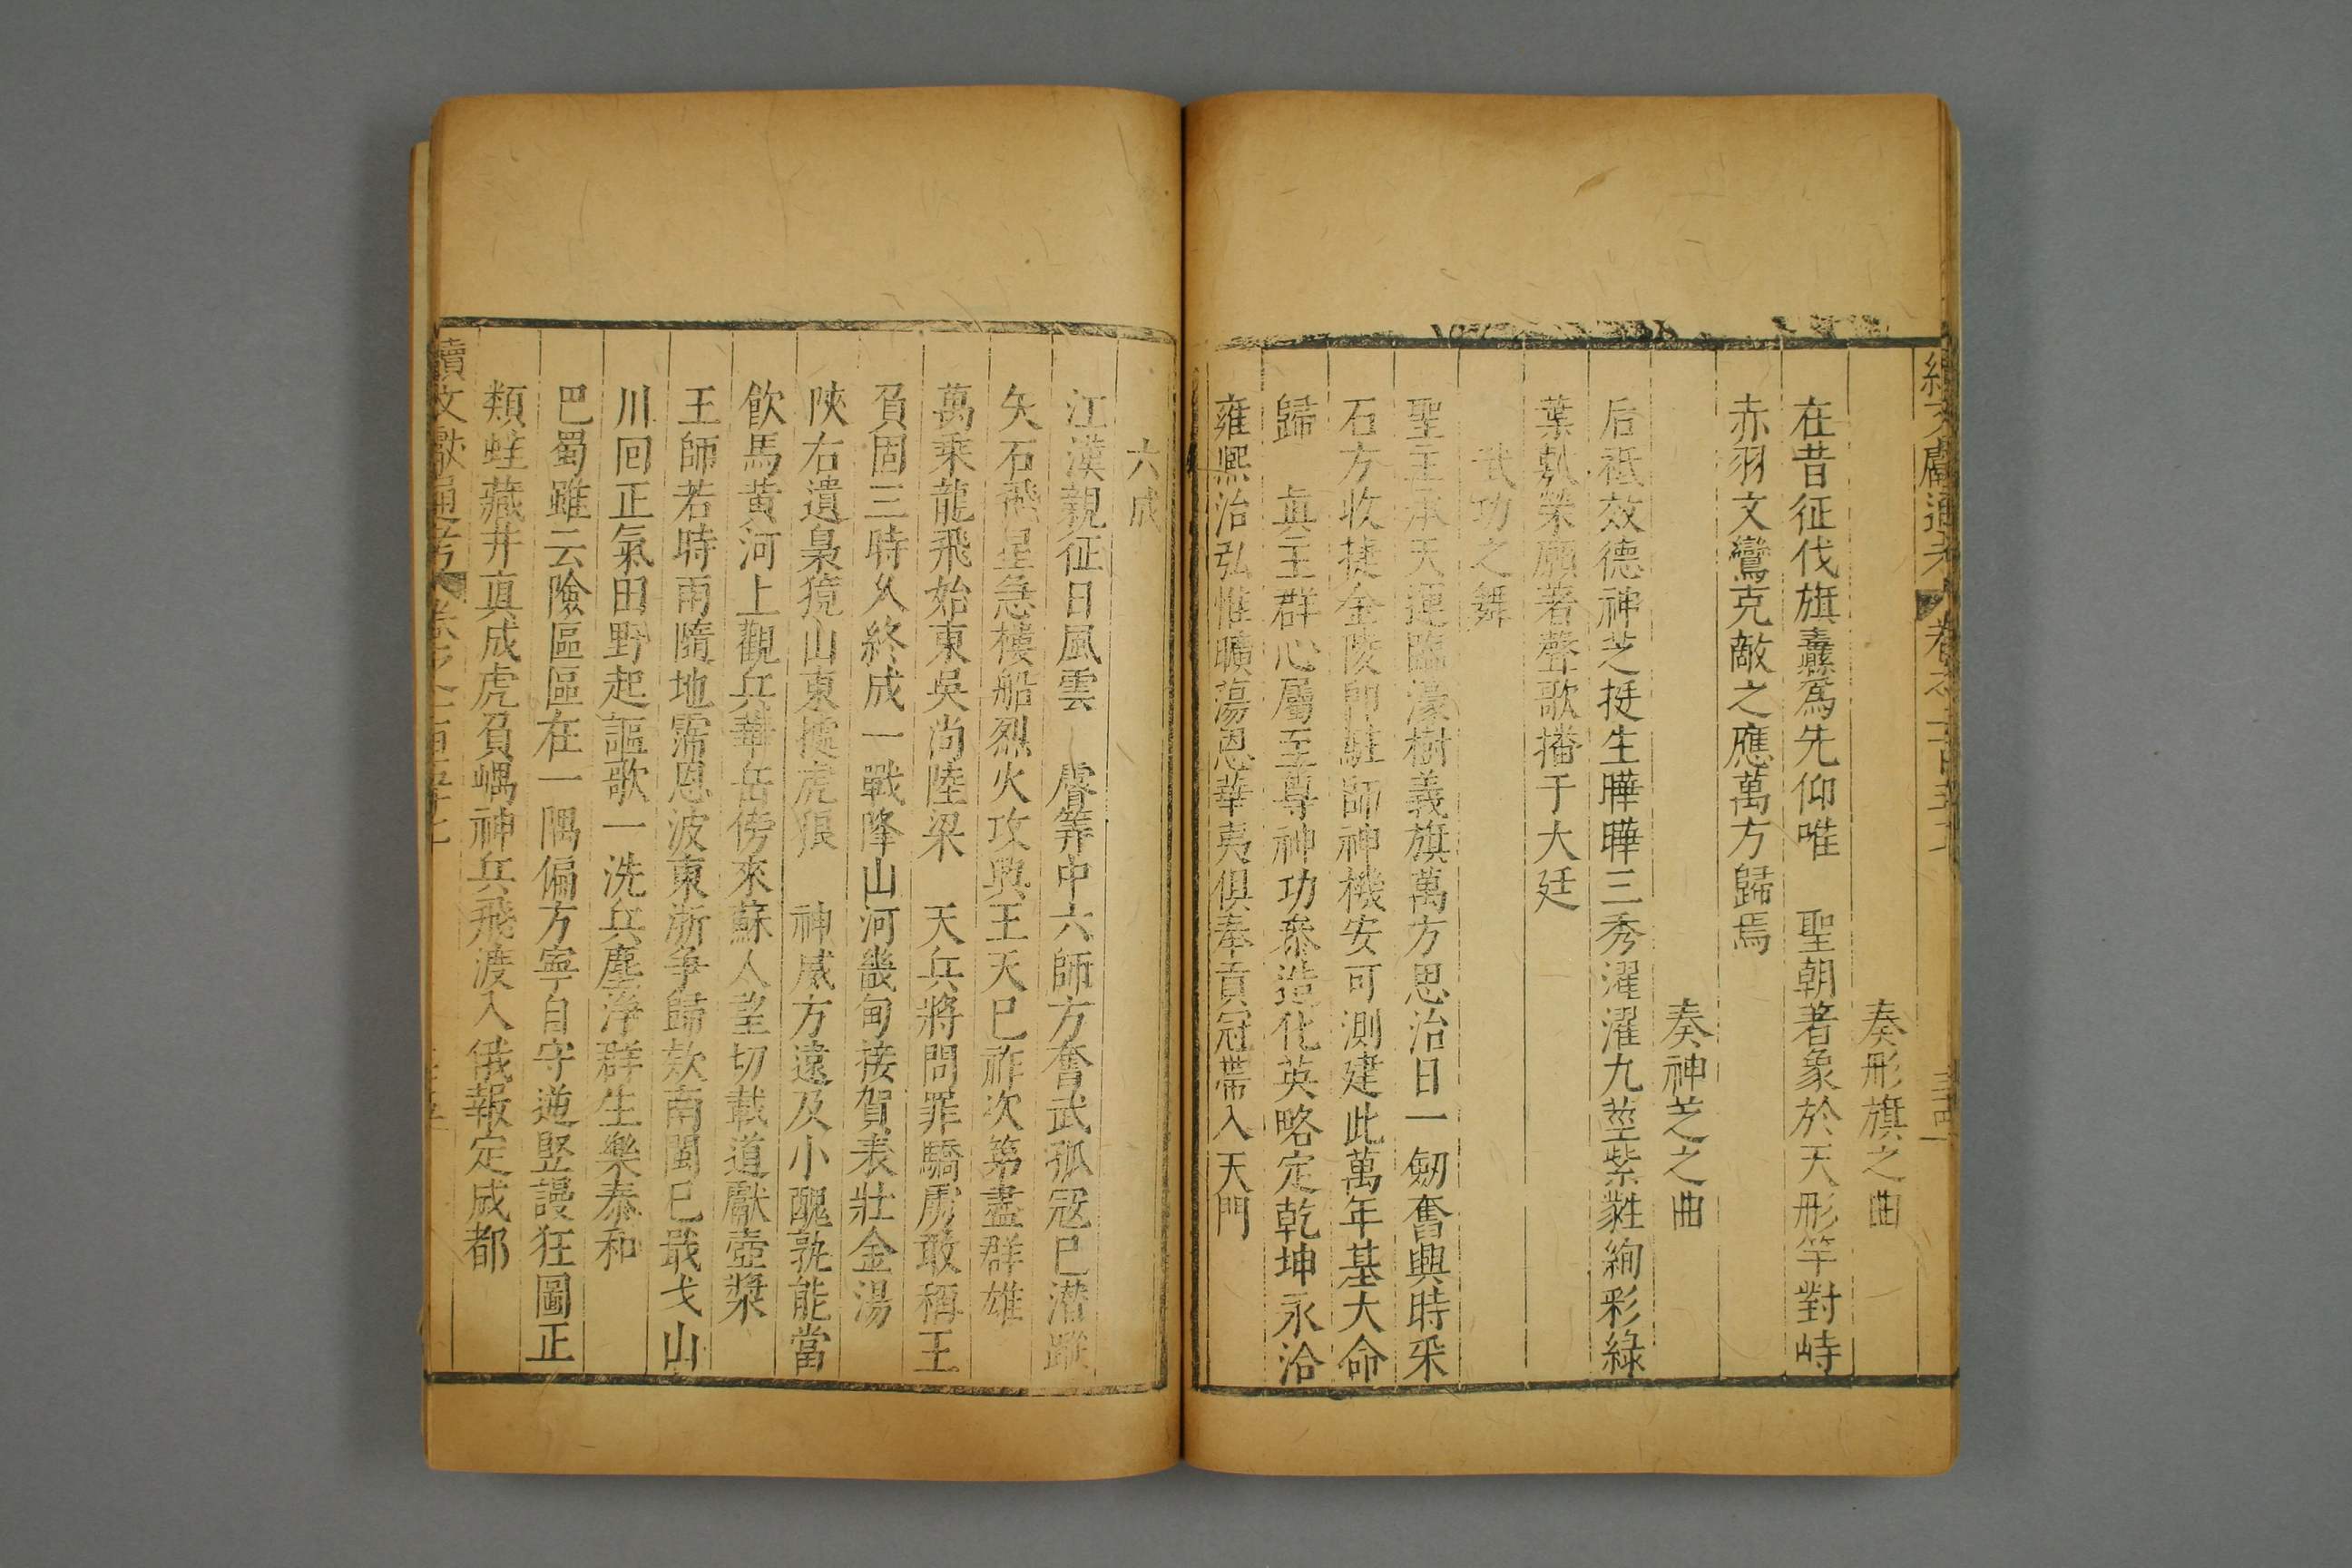 續文獻通考 卷之一百五十七 三十四
奏形旗之曲
在昔征伐旗纛爲先仰唯 聖朝著象於天形竿對峙
赤羽文鸞克敵之應萬方歸焉
奏神芝之曲
后祗效德神芝挺生曄曄三秀濯濯九莖紫蕤絢彩綠
葉敷榮願著聲歌播于大廷
武功之舞
聖主承天運臨濠樹義旗萬方思治日一劒奮興時采
石方收捷金陵卽駐師神機安可測建此萬年基大命
歸 眞主群心屬至尊神功叅造化英略定乾坤永洽
雍熙治弘惟曠蕩恩華夷俱奉貢冠帶入天門
六成
江漢親征日風雲 睿筭中六師方奮武孤冦已潜蹤
矢石飛星急樓船烈火攻興王天已祚次第盡群雄
萬乘龍飛始東吳尚陸梁 天兵將問罪驕虜敢稱王
負固三時久終成一戰降山河畿甸接賀表壯金湯
陜右遺梟獍山東據虎狼 神威方遠及小醜孰能當
飮馬黃河上觀兵華岳傍來蘇人望切載道獻壺漿
王師若時雨隨地霈恩波東浙爭歸欵南閩已戢戈山
川回正氣田野起謳歌一洗兵塵淨群生樂泰和
巴蜀雖云險區區在一隅偏方寧自守逆竪謾狂圖正
類蛙藏井真成虎負嵎神兵飛渡入俄報定成都
續文獻通考 卷之一百五十七